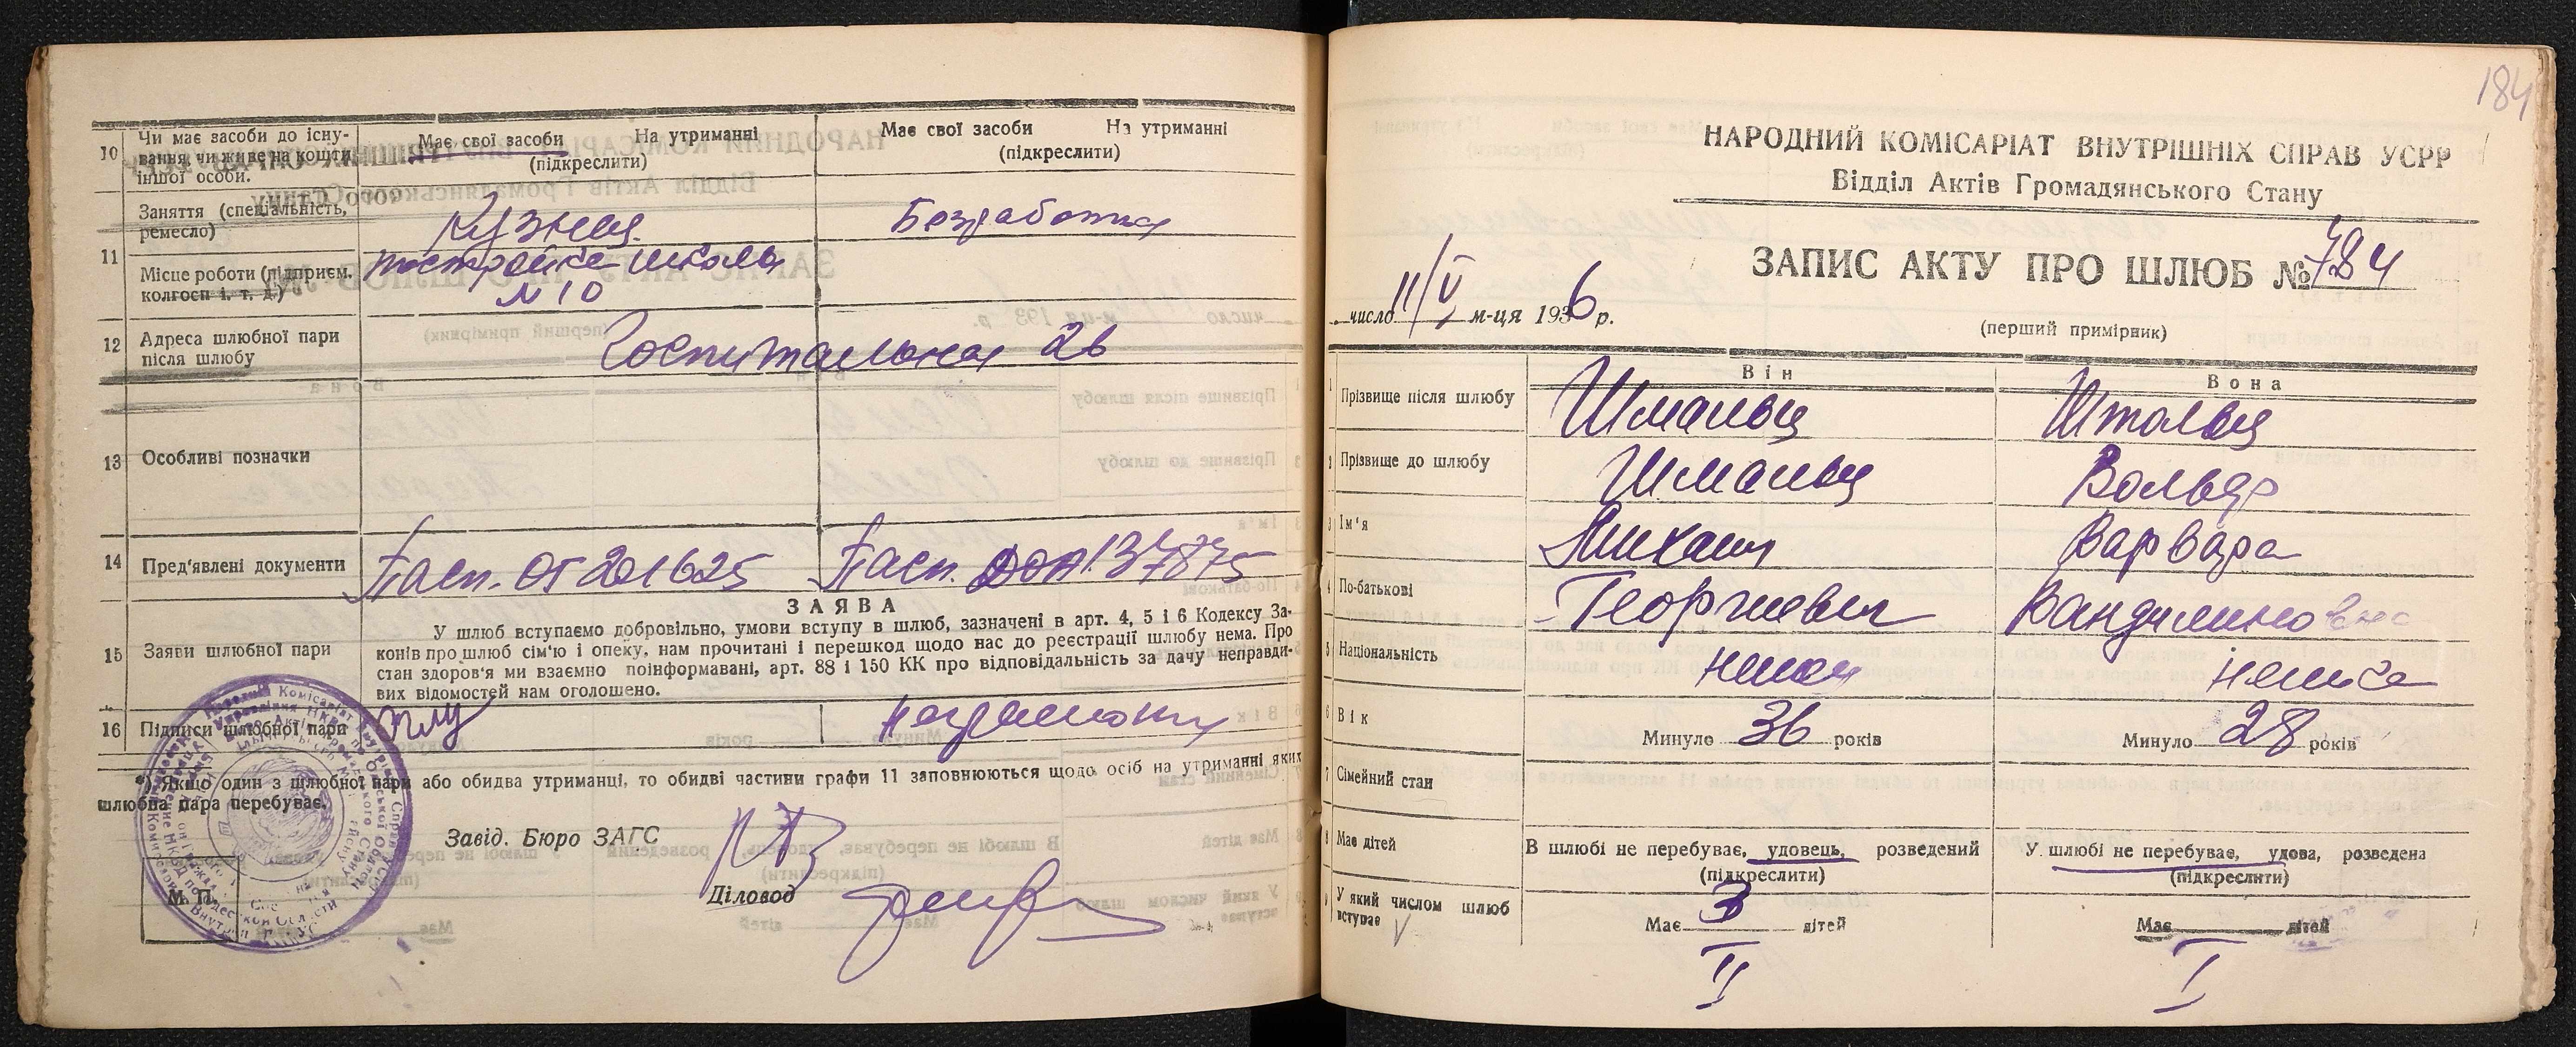 10 Чи має засоби до існу-
вання, чи живе на кошти
іншої особи.
Має свої засоби На утриманні
(підкреслити)
Має свої засоби На утриманні
(підкреслити)
11 Заняття (спеціальність,
ремесло)
Кузнец
Безработная
Місце роботи (підприєм.
колгосп і. т. д.)
постройка школы
N 10
12 Адреса шлюбної пари
після шлюбу
Госпитальная 26
13 Особливі позначки
14 Пред'явлені документи
Пасп. ОТ 201625
Пасп. 137875
15 Заяви шлюбної пари
ЗАЯВА
У шлюб вступаємо добровільно, умови вступу в шлюб, зазначені в арт. 4, 5 і 6 Кодексу За-
конів про шлюб сім'ю і опеку, нам прочитані і перешкод щодо нас до реєстрації шлюбу нема. Про
стан здоров'я ми взаємно поінформавані, арт. 88 і 150 КК про відповідальність за дачу неправди-
вих відомостей нам оголошено.
16 Підписи шлюбної пари
*) Якщо один з шлюбної пари або обидва утриманці, то обидві частини графи 11 заповнюються щодо осіб на утриманні яких
шлюбна пара перебуває.
Завід. Бюро ЗАГС
Діловод
М. П.
184
НАРОДНИЙ КОМІСАРІАТ ВНУТРІШНІХ СПРАВ УСРР
Відділ Актів Громадянського Стану
ЗАПИС АКТУ ПРО ШЛЮБ № 784
число 11/V м-ця 1936 р.
(перший примірник)
Він
Вона
1 Прізвище після шлюбу
Шмальц
Штольц
2 Прізвище до шлюбу
Шмальц
Вольф
3 Ім'я
Михаил
Варвара
4 По-батькові
Георгиевич
Вандилиновна
5 Національність
немец
немка
6 Вік
Минуло 36 років
Минуло 28 років
7 Сімейний стан
8 Має дітей
В шлюбі не перебуває, удовець, розведений
(підкреслити)
У шлюбі не перебуває, удова, розведена
(підкреслити)
9 У який числом шлюб
вступає
Має 3 дітей
Має дітей
II
I